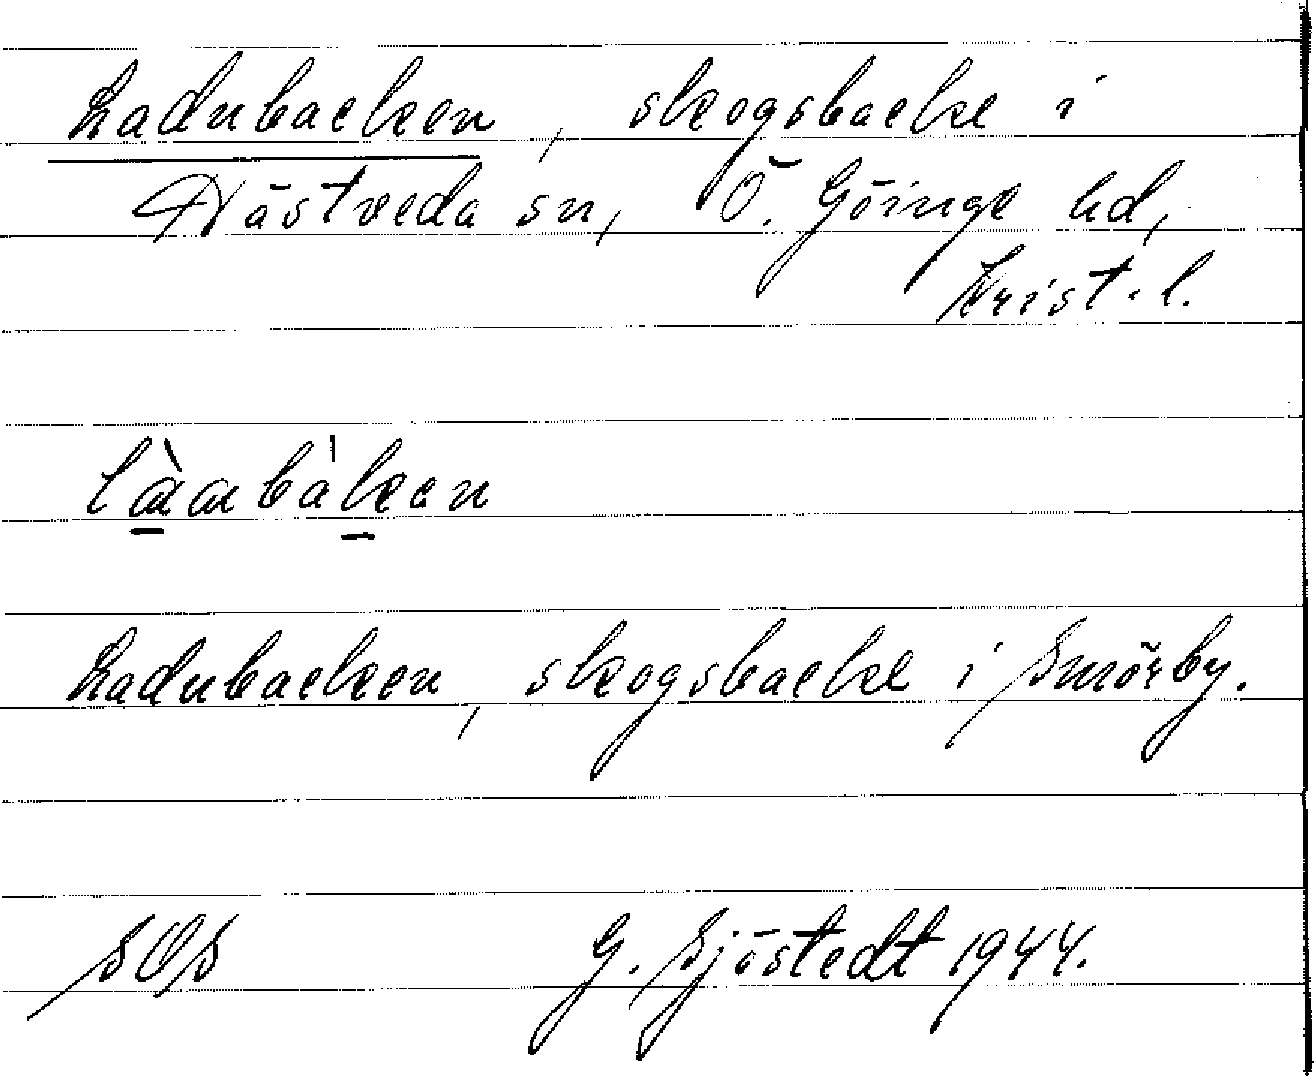 Ladubacken, skogsbacke i
Nästveda sn, Ö. Göinge hd,
Krist. l.
Ladubacken, skogsbacke i Smörby.
SOS G. Sjöstedt 1944.